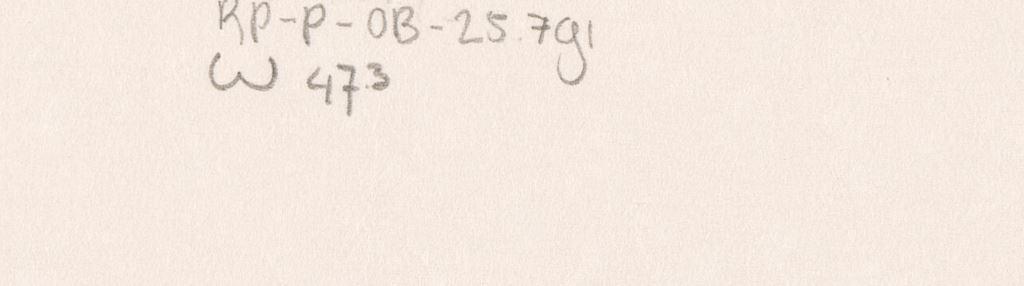 RP-P-OB-25.791
W 47³